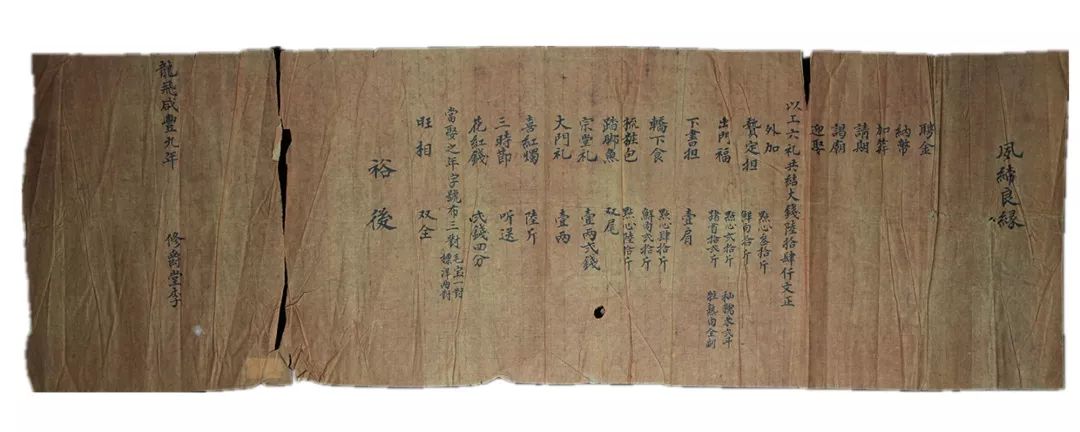 夙締良緣
聘金
納幣
加笄
請期
謁廟
迎娶
以工六礼共結大錢陸拾肆仟文正
外加
贄定担 點心叁拾斤 鮮肉拾斤
出門福 點心弍拾斤 豬首拾弍斤
下書担 壹肩
轎下食 點心肆拾斤 鮮肉弍拾斤
梳粧包 點心陸拾斤
踏脚魚 双尾
宗堂礼 壹两弍錢
大門礼 壹两
喜紅燭 陸斤
三時節 听送
花紅錢 弍錢四分
當娶之年字號布三對 毛宝一對 標洋两對
旺相 双全
裕後
龍飛咸豐九年
修爵堂李